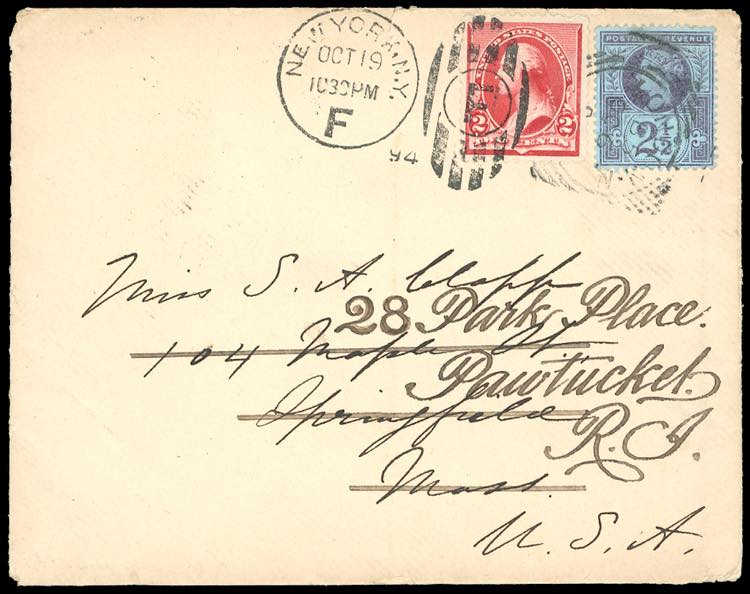 NEW YORK, N.Y.
OCT 19
10 30 PM
F
94
UNITED STATES POSTAGE
2 2
CENTS
POSTAGE REVENUE
2½
Miss S. A. Clapp
28 Park Place.
104 Maple St
Pawtucket.
Springfield
R. I.
Mass.
U. S. A.